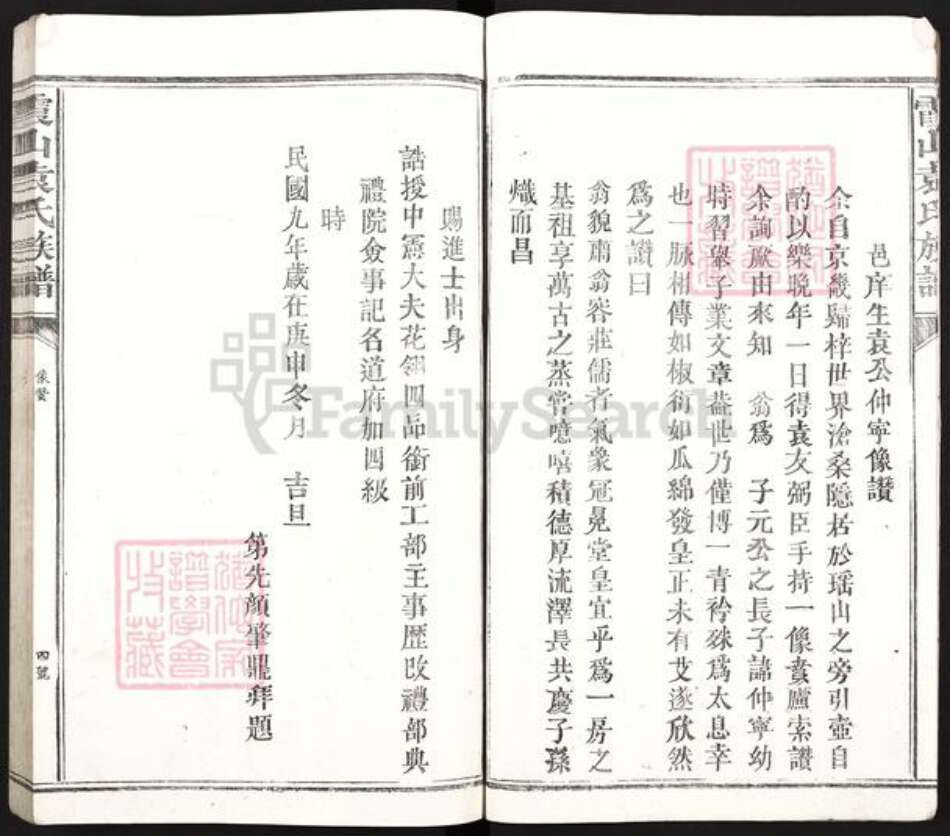 霞山袁氏族譜
邑庠生袁公仲寧像讚
余自京畿歸梓世界滄桑隱居於瑶山之旁引壺自
酌以樂晚年一日得袁友弼臣手持一像賫廬索讚
余詢厥由來知 翁爲 子元公之長子諱仲寧幼
時習舉子業文章蓋世乃僅博一青衿殊爲太息幸
也一脉相傳如椒衍如瓜綿發皇正未有艾遂欣然
爲之讚曰
翁貌肅翁容莊儒者氣象冠冕堂皇宜乎爲一房之
基祖享萬古之蒸嘗噫嘻積德厚流澤長共慶子孫
熾而昌
賜進士出身
誥授中憲大夫花翎四品銜前工部主事歷改禮部典
禮院僉事記名道府加四級
時
民國九年歲在庚申冬月 吉旦
第先顔肇鼎拜題
霞山袁氏族譜
像贊
四號
譜學會
收藏
FamilySearch